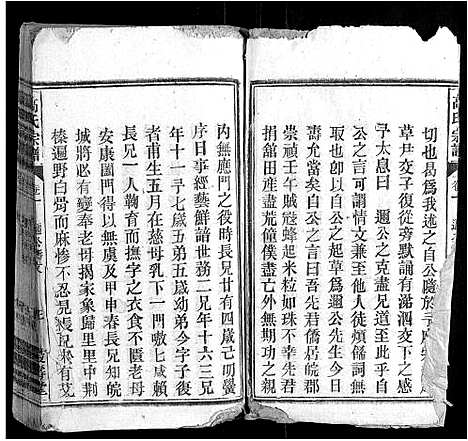 高氏宗譜
卷一
切也曷爲我述之自公隨於予
草尹炎子復從旁默誦而涕泗交下不能止
予太息曰邇公之克盡兄道以至此乎自
公之言可謂情文兼至他人徒煩餙詞無以
取也卽以自公之起草爲邇公先生今日
壽允宜矣自公尝曰吾先君僑居皖郡
崇禎壬午賊蜂起米粒如珠不幸先君
捐舘田産盡荒僮僕盡亡無期功之親
內無應門之後時長兄廿有四歲己明黌
序日事經藝鮮諳世務二兄年十六三兄
年十一予七歲五弟幼弟今字子復
者甫生五月在慈母乳下一門嗷七咸賴
長兄一人鞠育而撫字之衣食不匱老母
安康圖門得以無虞及甲申春長兄知皖
城將必有變奉老母揭家象歸里里中荆
榛遍野白骨如麻慘不忍見兄來有艾
高氏宗譜
卷一